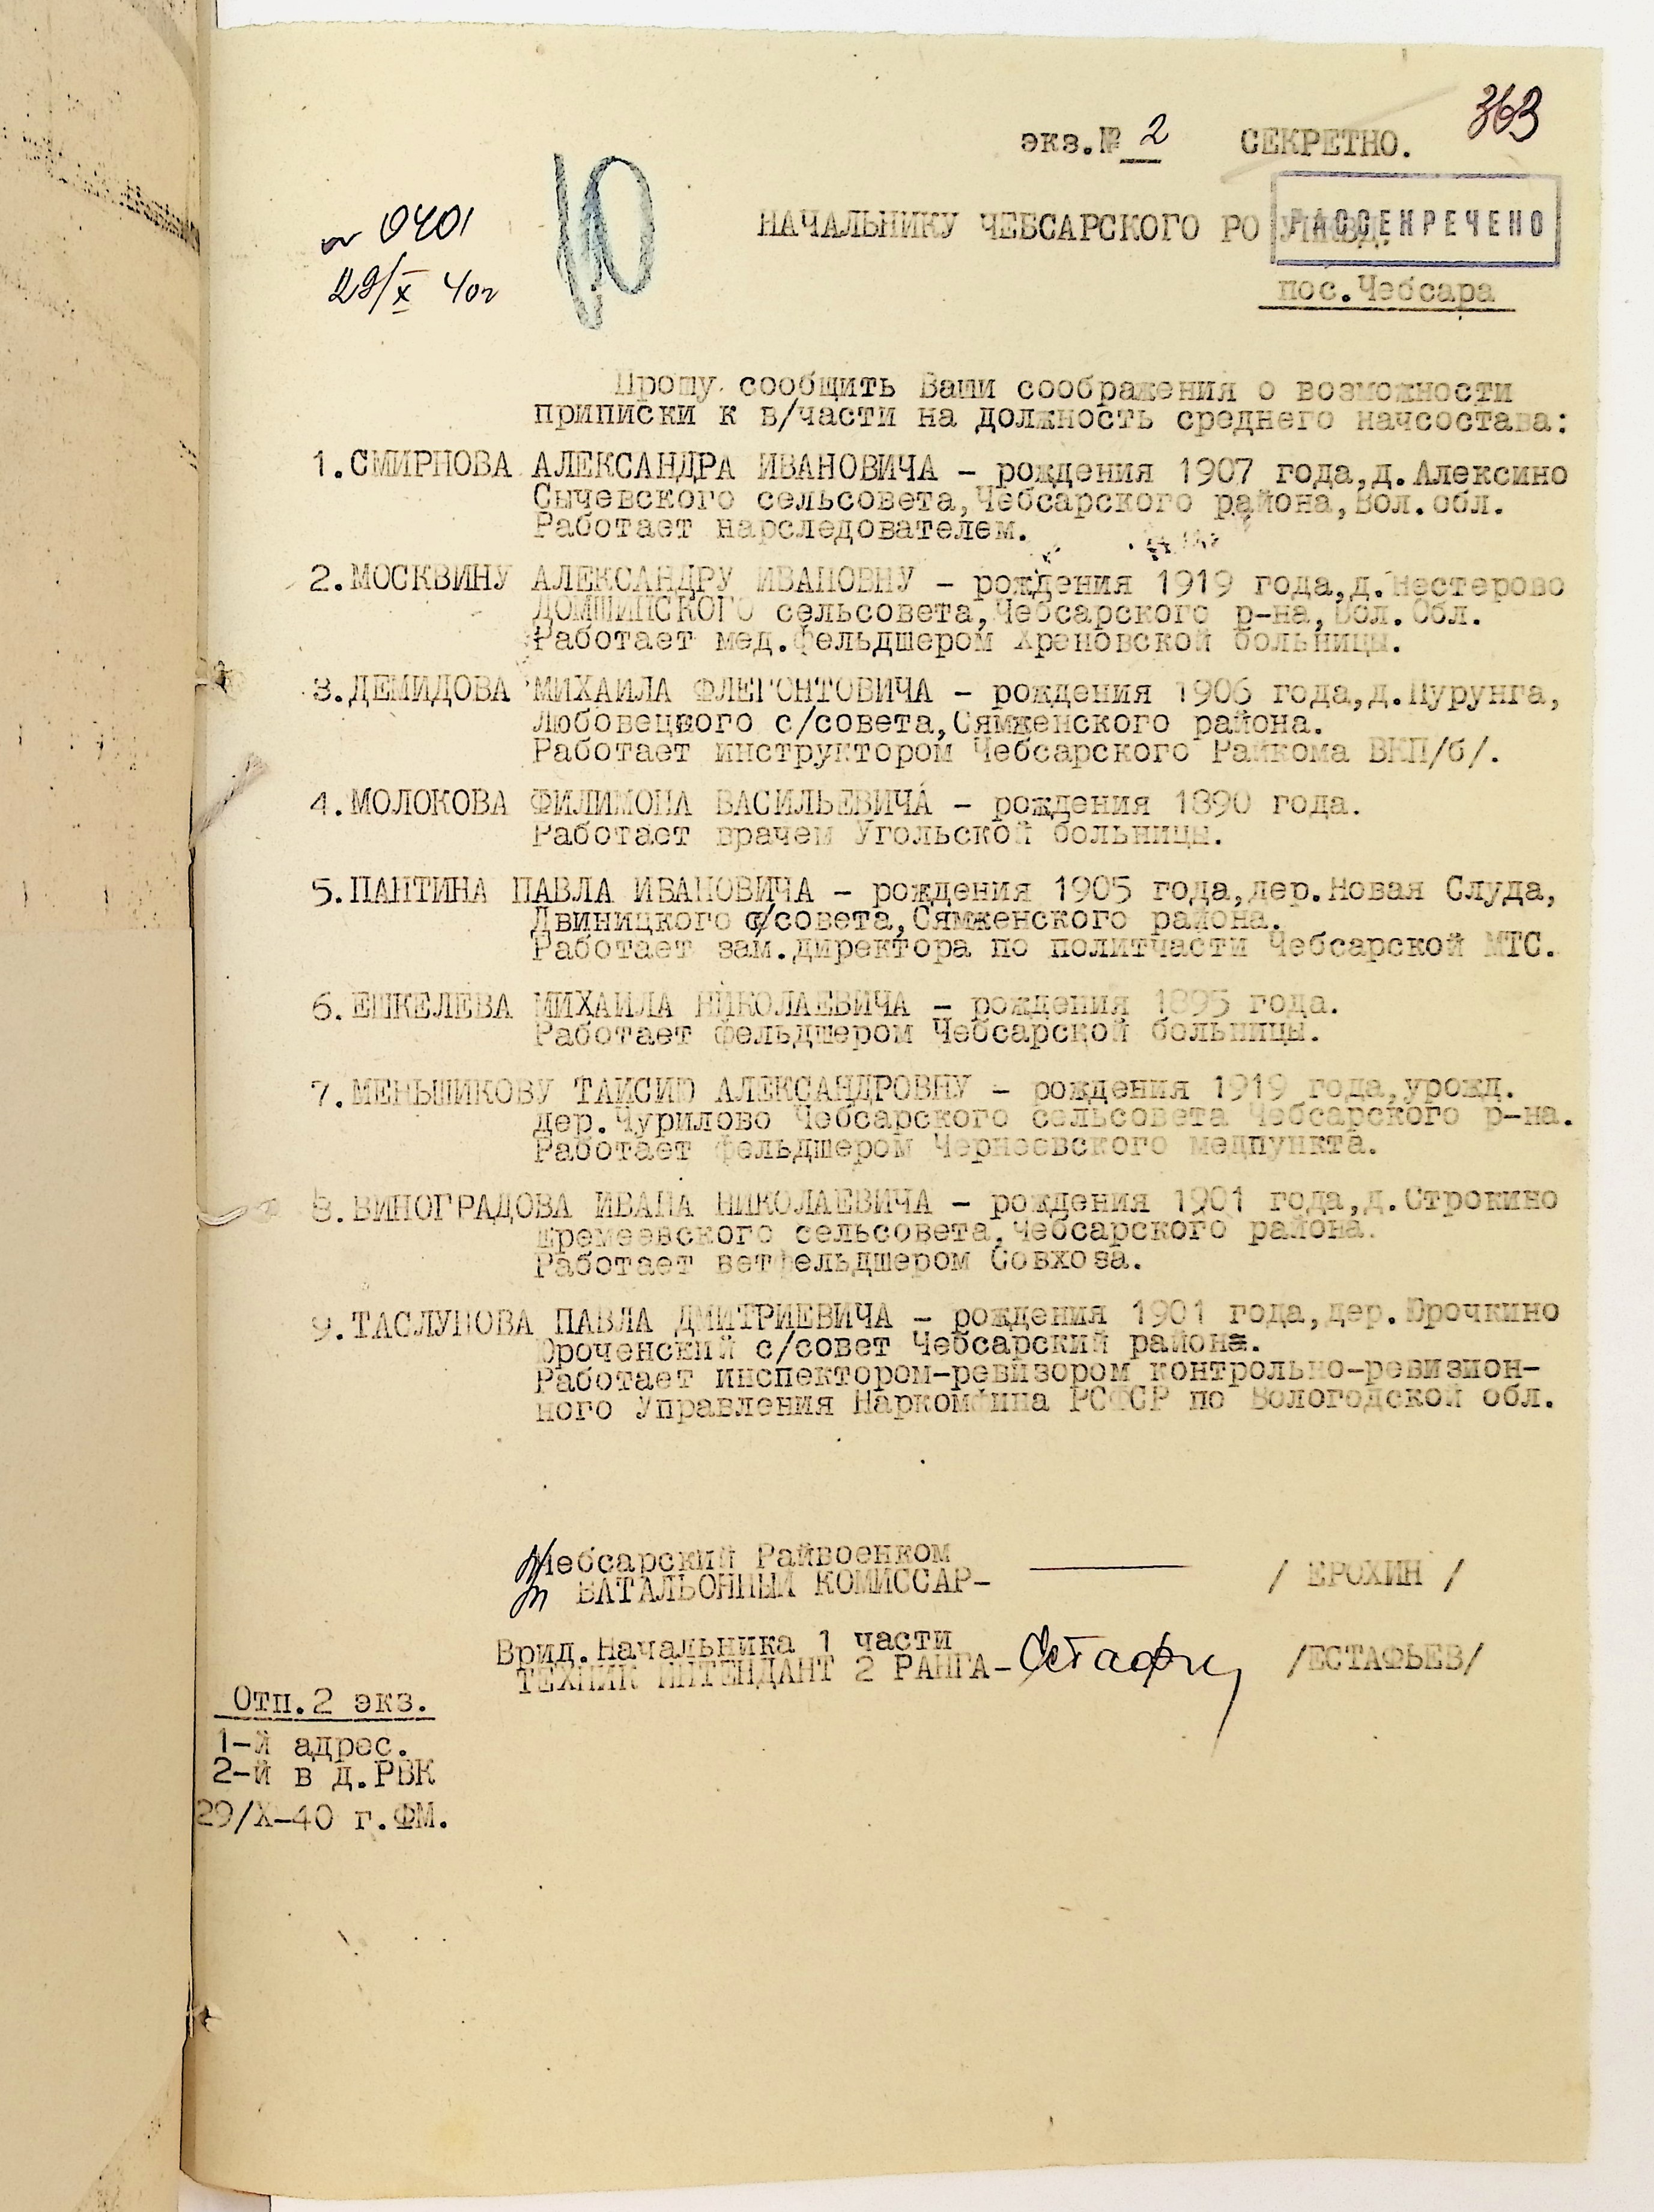 363
экз.№ 2 СЕКРЕТНО.
№ 0401
29/X 40г
10
НАЧАЛЬНИКУ ЧЕБСАРСКОГО РО УНКВД.
РАССЕКРЕЧЕНО
пос.Чебсара
Прошу сообщить Ваши соображения о возможности
приписки к в/части на должность среднего начсостава:
1.СМИРНОВА АЛЕКСАНДРА ИВАНОВИЧА – рождения 1907 года,д.Алексино
Сычевского сельсовета,Чебсарского района,Вол.обл.
Работает нарследователем.
2.МОСКВИНУ АЛЕКСАНДРУ ИВАНОВНУ – рождения 1919 года,д.Нестерово
ДОМШИНСКОГО сельсовета,Чебсарского р-на,Вол.Обл.
Работает мед.фельдшером Хреновской больницы.
3.ДЕМИДОВА МИХАИЛА ФЛЕГОНТОВИЧА – рождения 1906 года,д.Пурунга,
Любовецкого с/совета,Сямженского района.
Работает инструктором Чебсарского Райкома ВКП/б/.
4.МОЛОКОВА ФИЛИМОНА ВАСИЛЬЕВИЧА – рождения 1890 года.
Работает врачем Угольской больницы.
5.ПАНТИНА ПАВЛА ИВАНОВИЧА – рождения 1905 года,дер.Новая Слуда,
Двиницкого с/совета,Сямженского района.
Работает зам.директора по политчасти Чебсарской МТС.
6.ЕШКЕЛЕВА МИХАИЛА НИКОЛАЕВИЧА – рождения 1895 года.
Работает фельдшером Чебсарской больницы.
7.МЕНЬШИКОВУ ТАИСИЮ АЛЕКСАНДРОВНУ – рождения 1919 года,урожд.
дер.Чурилово Чебсарского сельсовета Чебсарского р-на.
Работает фельдшером Чернеевского медпункта.
8.ВИНОГРАДОВА ИВАНА НИКОЛАЕВИЧА – рождения 1901 года,д.Строкино
сельсовета,Чебсарского района.
Работает ветфельдшером Совхоза.
9.ТАСЛУНОВА ПАВЛА ДМИТРИЕВИЧА – рождения 1901 года,дер.Юрочкино
Юроченский с/совет Чебсарский район.
Работает инспектором-ревизором контрольно-ревизион-
ного Управления Наркомфина РСФСР по Вологодской обл.
Чебсарский Райвоенком
БАТАЛЬОННЫЙ КОМИССАР– / ЕРОХИН /
Врид.Начальника 1 части
ТЕХНИК ИНТЕНДАНТ 2 РАНГА– Естафь /ЕСТАФЬЕВ/
Отп.2 экз.
1-й адрес.
2-й в д.РВК
29/X-40 г.ФМ.